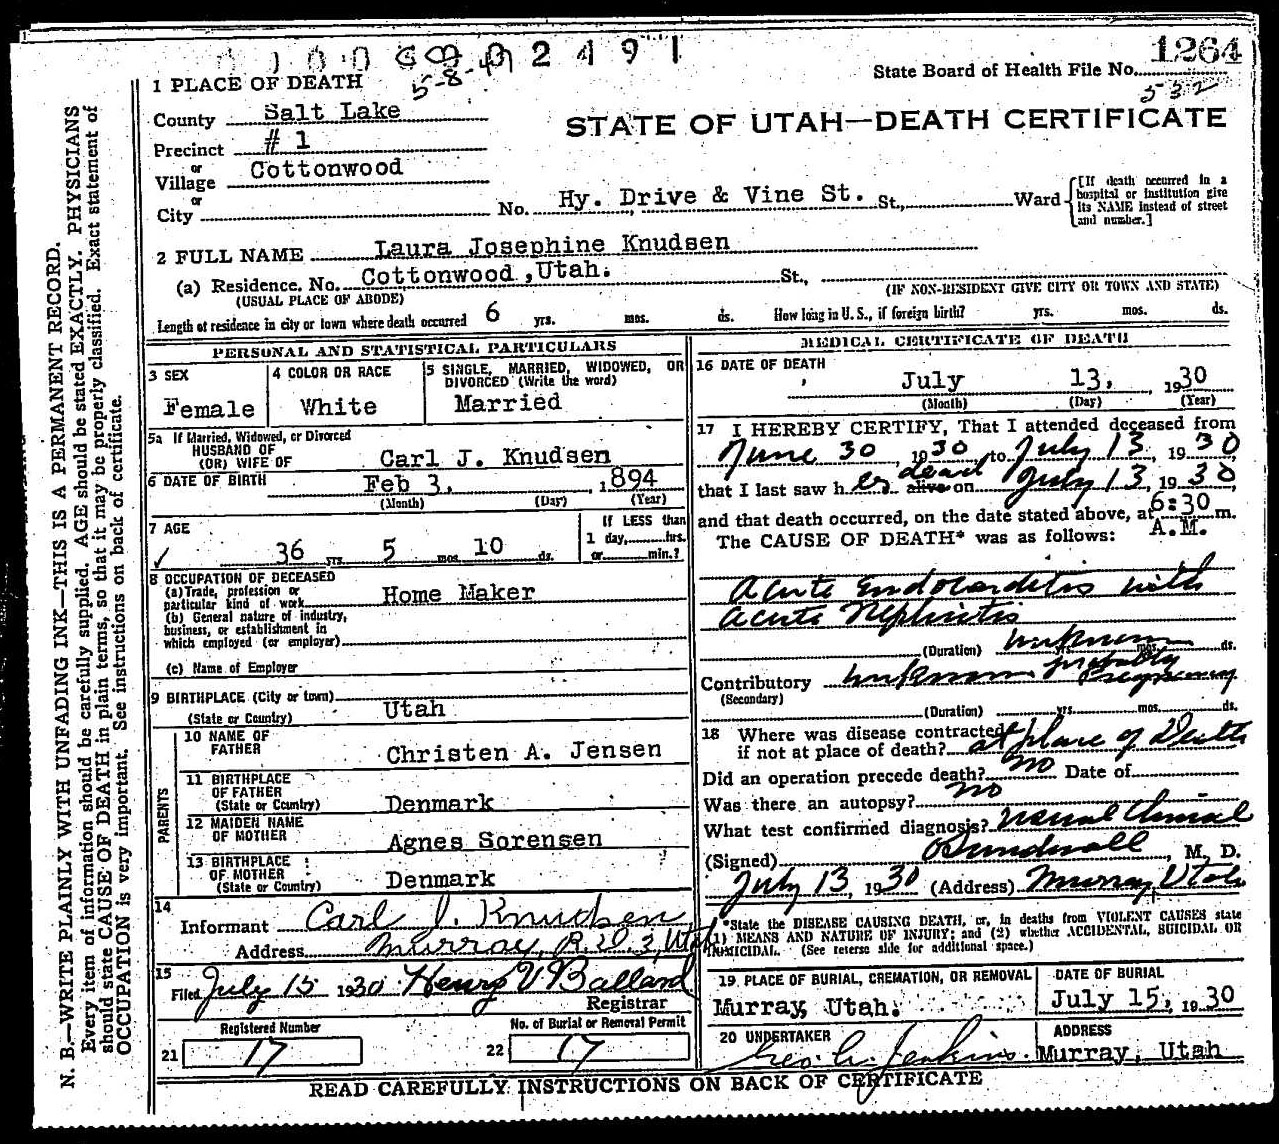 2 4 9 1
5-8-
1264
State Board of Health File No.
532
1 PLACE OF DEATH
County Salt Lake
STATE OF UTAH—DEATH CERTIFICATE
Precinct # 1
or
Village Cottonwood
or
City
No. Hy. Drive & Vine St. St., Ward
[If death occurred in a hospital or institution give its NAME instead of street and number.]
2 FULL NAME Laura Josephine Knudsen
(a) Residence. No. Cottonwood, Utah. St.,
(USUAL PLACE OF ABODE) (IF NON-RESIDENT GIVE CITY OR TOWN AND STATE)
Length of residence in city or town where death occurred 6 yrs. mos. ds. How long in U. S., if foreign birth? yrs. mos. ds.
PERSONAL AND STATISTICAL PARTICULARS
3 SEX
Female
4 COLOR OR RACE
White
5 SINGLE, MARRIED, WIDOWED, OR
DIVORCED (Write the word)
Married
5a If Married, Widowed, or Divorced
HUSBAND OF
(OR) WIFE OF Carl J. Knudsen
6 DATE OF BIRTH Feb 3, 1894
(Month) (Day) (Year)
7 AGE
36 yrs. 5 mos. 10 ds.
If LESS than
1 day, hrs.
or min.?
8 OCCUPATION OF DECEASED
(a) Trade, profession or
particular kind of work Home Maker
(b) General nature of industry,
business, or establishment in
which employed (or employer)
(c) Name of Employer
9 BIRTHPLACE (City or town)
(State or Country) Utah
PARENTS
10 NAME OF
FATHER Christen A. Jensen
11 BIRTHPLACE
OF FATHER
(State or Country) Denmark
12 MAIDEN NAME
OF MOTHER Agnes Sorensen
13 BIRTHPLACE
OF MOTHER
(State or Country) Denmark
14
Informant Carl J. Knudsen
Address Murray, R.D. 3, Utah
15
Filed July 15 1930 Henry V Balland
Registrar
21 Registered Number 17
22 No. of Burial or Removal Permit 17
MEDICAL CERTIFICATE OF DEATH
16 DATE OF DEATH
July 13, 1930
(Month) (Day) (Year)
17 I HEREBY CERTIFY, That I attended deceased from
June 30 1930, to July 13, 1930,
that I last saw her dead alive on July 13, 1930,
and that death occurred, on the date stated above, at 6:30 m.
A.M.
The CAUSE OF DEATH* was as follows:
Acute Endocarditis with
Acute Nephritis
(Duration) unknown mos. ds.
Contributory unknown probably
Pregnancy
(Secondary)
(Duration) yrs. mos. ds.
18 Where was disease contracted
if not at place of death? at place of Death
Did an operation precede death? no Date of
Was there an autopsy? no
What test confirmed diagnosis? usual Clinical
(Signed) Sundwall, M. D.
July 13, 1930 (Address) Murray, Utah
*State the DISEASE CAUSING DEATH, or, in deaths from VIOLENT CAUSES state
(1) MEANS AND NATURE OF INJURY; and (2) whether ACCIDENTAL, SUICIDAL OR
HOMICIDAL. (See reverse side for additional space.)
19 PLACE OF BURIAL, CREMATION, OR REMOVAL
Murray, Utah.
DATE OF BURIAL
July 15, 1930
20 UNDERTAKER
Geo. A. Jenkins.
ADDRESS
Murray, Utah
READ CAREFULLY INSTRUCTIONS ON BACK OF CERTIFICATE
N. B.—WRITE PLAINLY WITH UNFADING INK—THIS IS A PERMANENT RECORD.
Every item of information should be carefully supplied. AGE should be stated EXACTLY. PHYSICIANS
should state CAUSE OF DEATH in plain terms, so that it may be properly classified. Exact statement of
OCCUPATION is very important. See instructions on back of certificate.